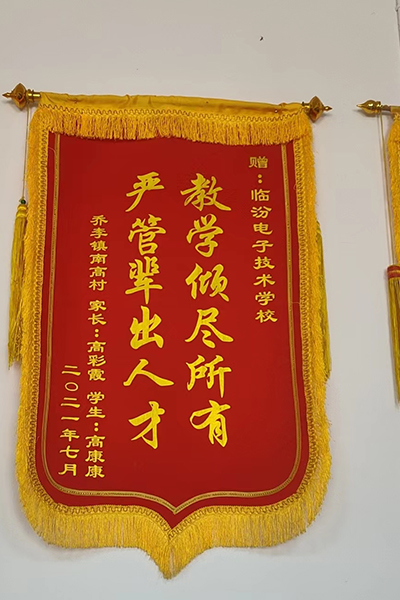 赠：临汾电子技术学校
教学倾尽所有
严管辈出人才
乔李镇南高村 家长：高彩霞 学生：高康康
二〇二一年七月